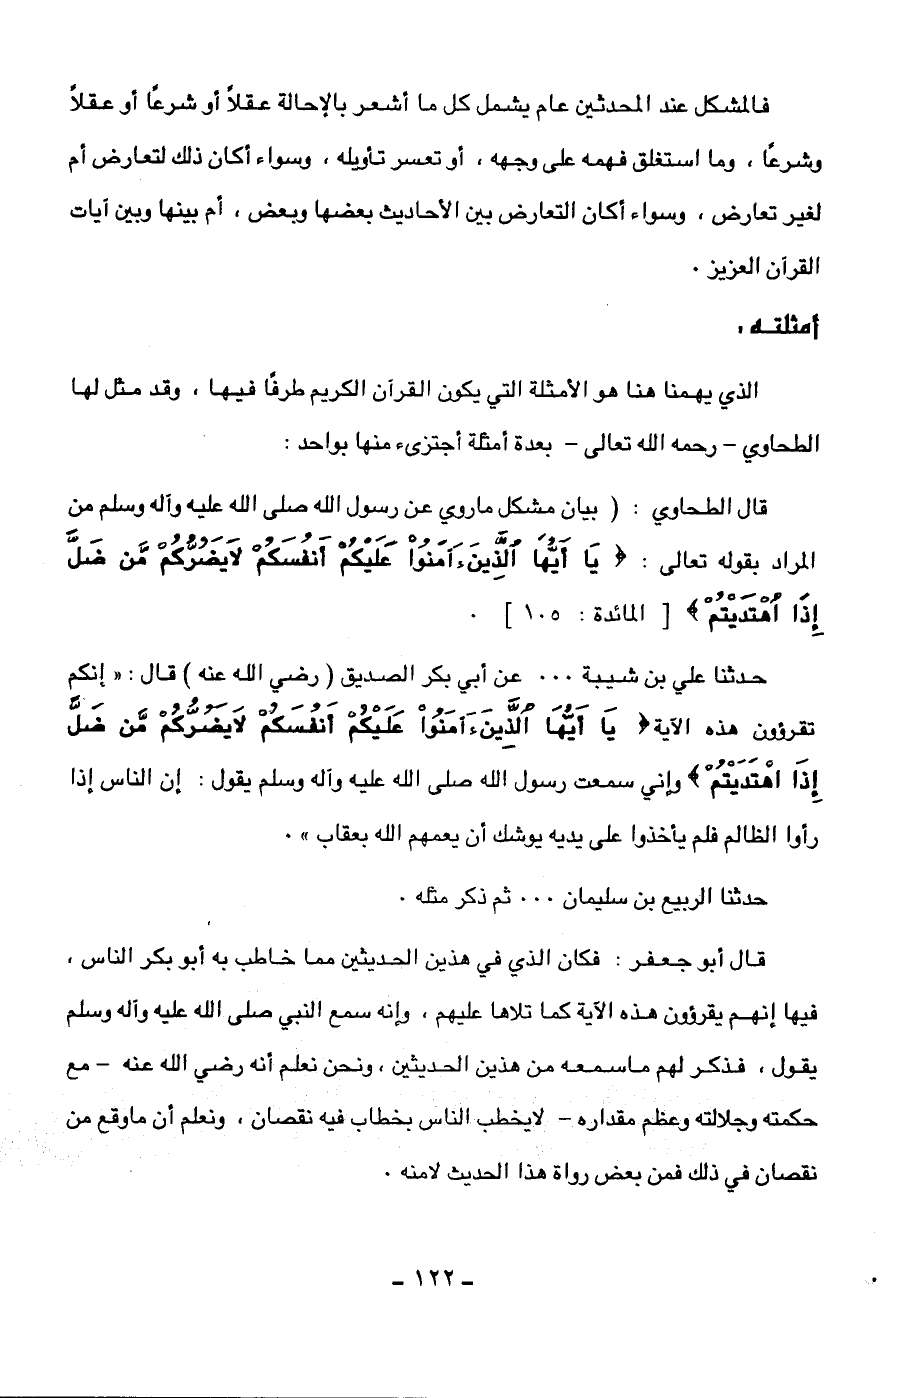 فالمشكل عند المحدثين عام يشمل كل ما أشعر بالإحالة عقلاً أو شرعًا أو عقلاً
وشرعًا ، وما استغلق فهمه على وجهه ، أو تعسر تأويله ، وسواء أكان ذلك لتعارض أم
لغير تعارض ، وسواء أكان التعارض بين الأحاديث بعضها وبعض ، أم بينها وبين آيات
القرآن العزيز .
أمثلتـه :
الذي يهمنا هنا هو الأمثلة التي يكون القرآن الكريم طرفًا فيها ، وقد مثل لها
الطحاوي – رحمه الله تعالى – بعدة أمثلة أجتزىء منها بواحد :
قال الطحاوي : ( بيان مشكل ماروي عن رسول الله صلى الله عليه وآله وسلم من
المراد بقوله تعالى : ﴿ يَا أَيُّهَا الَّذِينَ ءَامَنُوا عَلَيْكُمْ أَنفُسَكُمْ لَايَضُرُّكُم مَّن ضَلَّ
إِذَا اهْتَدَيْتُمْ ﴾ [ المائدة : ١٠٥ ] .
حدثنا علي بن شيبة ... عن أبي بكر الصديق ( رضي الله عنه ) قال : « إنكم
تقرؤون هذه الآية ﴿ يَا أَيُّهَا الَّذِينَ ءَامَنُوا عَلَيْكُمْ أَنفُسَكُمْ لَايَضُرُّكُم مَّن ضَلَّ
إِذَا اهْتَدَيْتُمْ ﴾ وإني سمعت رسول الله صلى الله عليه وآله وسلم يقول : إن الناس إذا
رأوا الظالم فلم يأخذوا على يديه يوشك أن يعمهم الله بعقاب » .
حدثنا الربيع بن سليمان ... ثم ذكر مثله .
قال أبو جعفر : فكان الذي في هذين الحديثين مما خاطب به أبو بكر الناس ،
فيها إنهم يقرؤون هذه الآية كما تلاها عليهم ، وإنه سمع النبي صلى الله عليه وآله وسلم
يقول ، فذكر لهم ماسمعه من هذين الحديثين ، ونحن نعلم أنه رضي الله عنه – مع
حكمته وجلالته وعظم مقداره – لايخطب الناس بخطاب فيه نقصان ، ونعلم أن ماوقع من
نقصان في ذلك فمن بعض رواة هذا الحديث لامنه .
– ١٢٢ –